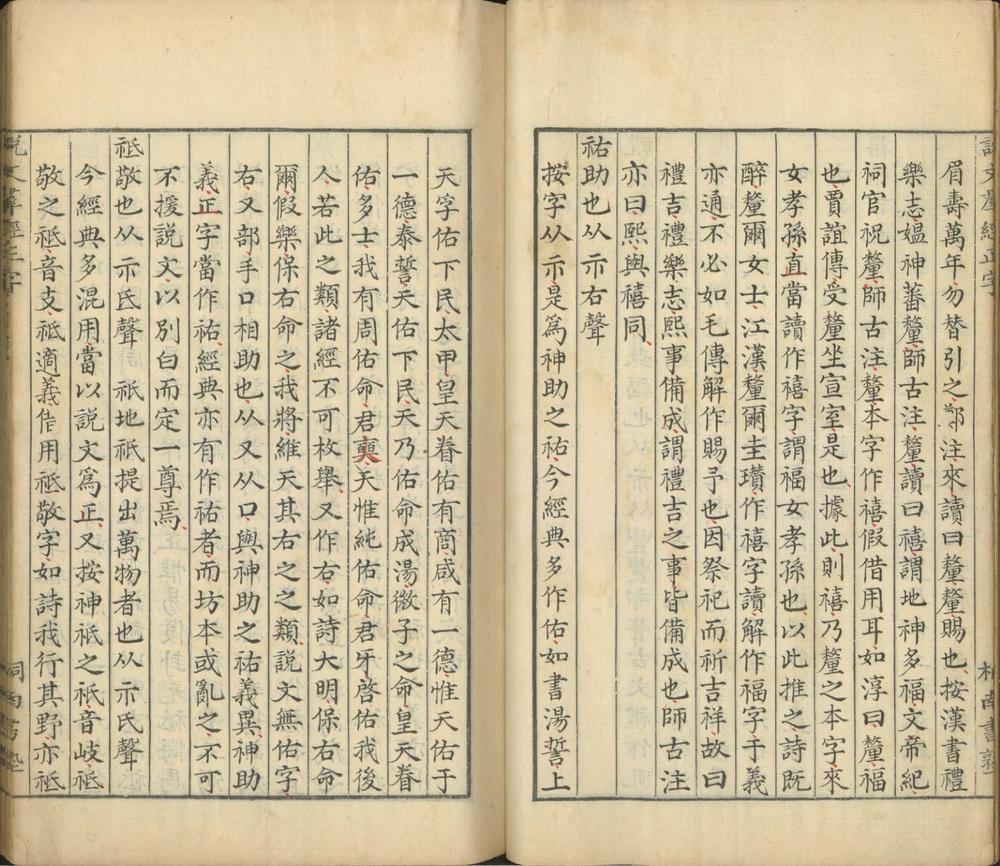 眉壽萬年勿替引之鄭注來讀曰釐釐賜也按漢書禮
樂志媪神蕃釐師古注釐讀曰禧謂地神多福文帝紀
祠官祝釐師古注釐本字作禧假借用耳如淳曰釐福
也賈誼傳受釐坐宣室是也據此則禧乃釐之本字來
女孝孫直當讀作禧字謂福女孝孫也以此推之詩既
醉釐爾女士江漢釐爾圭瓚作禧字讀解作福字于義
亦通不必如毛傳解作賜予也因祭祀而祈吉祥故曰
禮吉禮樂志熙事備成謂禮吉之事皆備成也師古注
亦曰熙與禧同
祐助也从示右聲
按字从示是爲神助之祐今經典多作佑如書湯誓上
天孚佑下民太甲皇天眷佑有商咸有一德惟天佑于
一德泰誓天佑下民天乃佑命成湯微子之命皇天眷
佑多士我有周佑命君奭天惟純佑命君牙啓佑我後
人若此之類諸經不可枚舉又作右如詩大明保右命
爾假樂保右命之我將維天其右之之類說文無佑字
右又部手口相助也从又从口與神助之祐義異神助
義正字當作祐經典亦有作祐者而坊本或亂之不可
不援說文以別白而定一尊焉
祗敬也从示氐聲 祇地祇提出萬物者也从示氏聲
今經典多混用當以說文爲正又按神祇之祇音岐祗
敬之祗音支祗適義借用祗敬字如詩我行其野亦祗